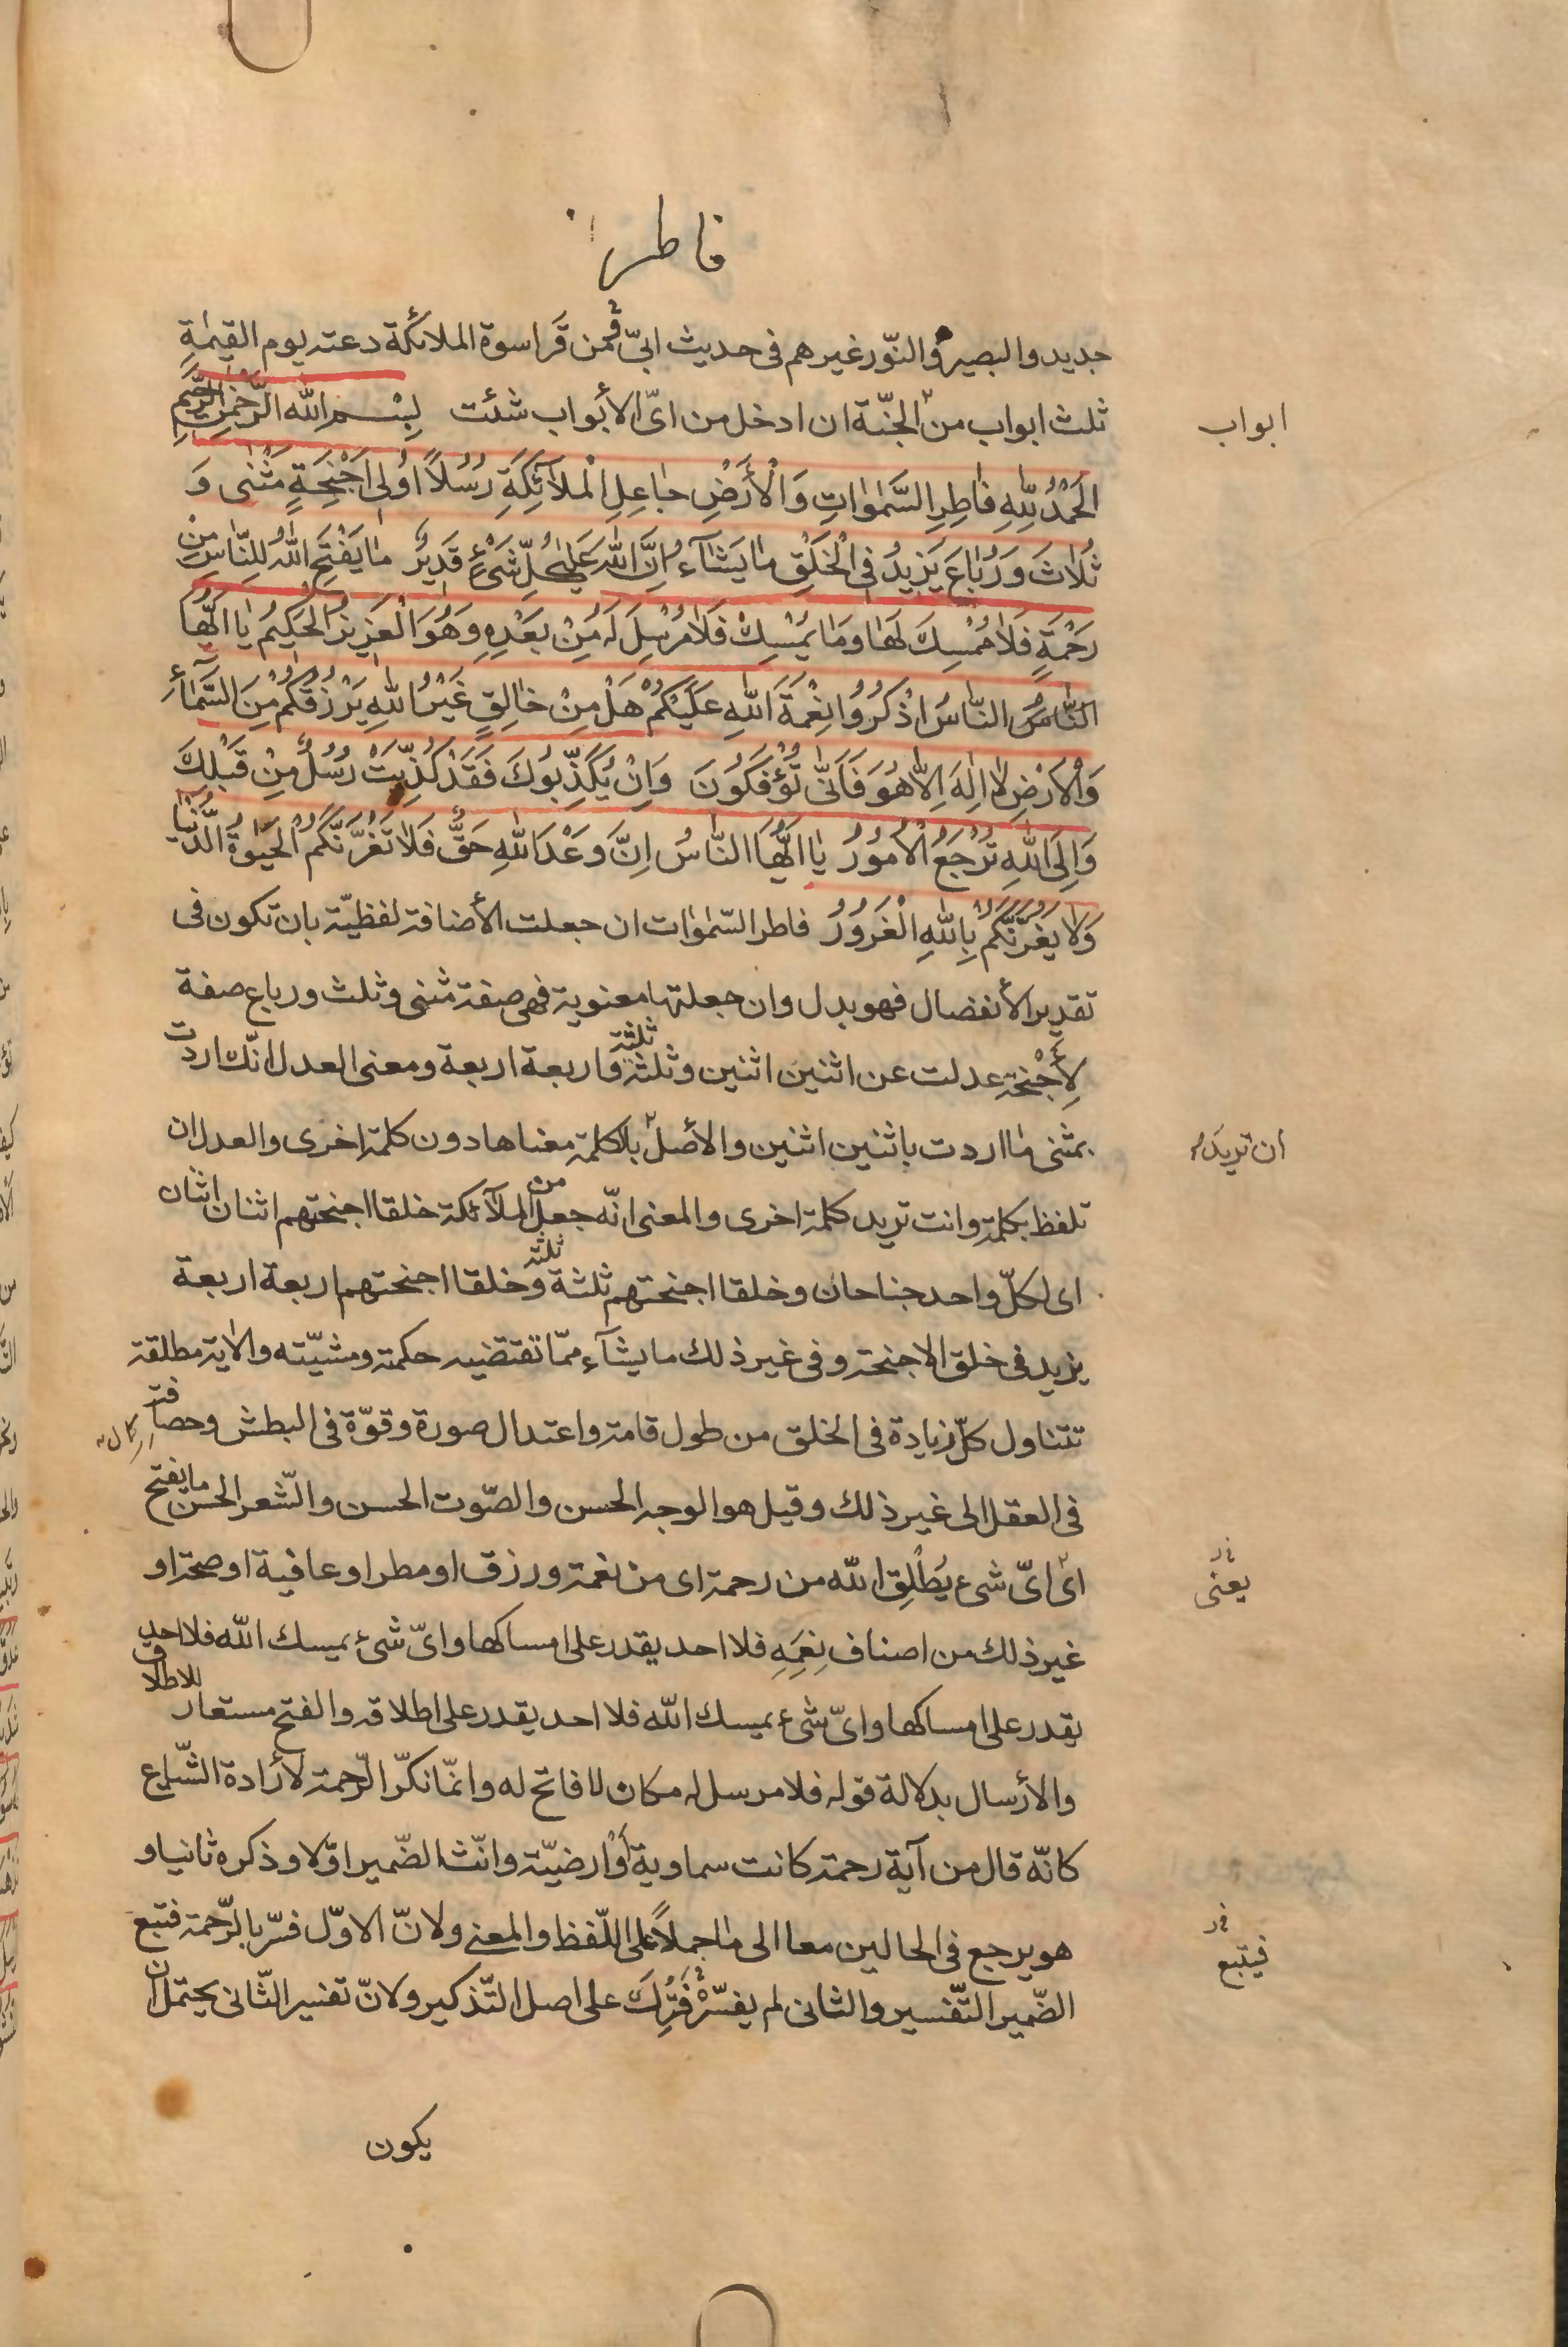 فاطر
جديد والبصير والنّور غيرهم فى حديث ابىّ فمن قَرا سوة الملائكة دعته يوم القيٰمةِ
ثلث ابواب من الجنّة ان ادخل من اىّ الأبواب شئت بِسْمِ الله الرَّحْمٰنِ الرَّحيمِ
ابواب
الْحَمْدُ لِلّٰهِ فٰاطِرِ السَّمٰوٰاتِ وَالْأَرْضِ جٰاعِلِ الْمَلآئِكَةِ رُسُلاً اوُلى اَجْنِحَةٍ مَثْنٰى وَ
ثُلاٰثَ وَرُبٰاعَ يَزيدُ فِى الْخَلْقِ مٰا يَشٰآءُ اِنَّ اللهَ عَلىٰ كُلِّ شَىْءٍ قَديرٌ مٰا يَفْتَحِ اللهُ لِلنّٰاسِ مِنْ
رَحْمَةٍ فَلاٰ مُمْسِكَ لَهٰا وَمٰا يُمْسِكْ فَلاٰ مُرْسِلَ لَهُ مِنْ بَعْدِهِ وَهُوَ الْعَزيزُ الْحَكيمُ يٰا اَيُّهَا
النّٰاسُ النّٰاسُ اذْكُرُوا نِعْمَةَ اللهِ عَلَيْكُمْ هَلْ مِنْ خٰالِقٍ غَيْرُ اللهِ يَرْزُقُكُمْ مِنَ السَّمٰآءِ
وَالْاَرْضِ لاٰ اِلٰهَ اِلاّٰ هُوَ فَاَنّٰى تُؤْفَكُونَ وَاِنْ يُكَذِّبُوكَ فَقَدْ كُذِّبَتْ رُسُلٌ مِنْ قَبْلِكَ
وَاِلَى اللهِ تُرْجَعُ الْاُمُورُ يٰا اَيُّهَا النّٰاسُ اِنَّ وَعْدَ اللهِ حَقٌّ فَلاٰ تَغُرَّنَّكُمُ الْحَيٰوةُ الدُّنْيٰا
وَلاٰ يَغُرَّنَّكُمْ بِاللهِ الْغَرُورُ فاطر السّمٰوٰات ان جعلت الأضافة لفظيّة بان تكون فى
تقدير الأنفصال فهو بدل وان جعلتها معنوية فهى صفة مثنى وثلث ورباع صفة
لِأَجْنحة عدلت عن اثنين اثنين وثلثة ثلثة واربعة اربعة ومعنى العدل انّك اردت
بمثنى مٰا اردت باثنين اثنين والأصل بالكلمة معناها دون كلمة اخرى والعدل ان
ان تريد
تلفظ بكلمة وانت تريد كلمة اخرى والمعنى انّه جعل من الملآئكة خلقا اجنحتهم اثنان اثنان
اى لكلّ واحد جناحان وخلقا اجنحتهم ثلثة ثلثة وخلقا اجنحتهم اربعة اربعة
يزيد فى خلق الاجنحة وفى غير ذلك ما يشآء ممّا تقتضيه حكمة ومشيّته والاٰية مطلقة
تتناول كلّ زيادة فى الخلق من طول قامة واعتدال صورة وقوّة فى البطش وحصافة
فى العقل الى غير ذلك وقيل هو الوجه الحسن والصّوت الحسن والشّعر الحسن ما يفتح
اى اىّ شىء يُطْلِق الله من رحمة اى من نعمة ورزق او مطر او عافية او صحة او
يعنى
غير ذلك من اصناف نِعَمِهِ فلا احد يقدر على امساكها واىّ شىء يمسك الله فلا احد
يقدر على امساكها واىّ شىء يمسك الله فلا احد يقدر على اطلاقه والفتح مستعار للاطلاق
والأرسال بدلالة قوله فلا مرسل له مكان لا فاتح له وانّما نكّر الرّحمة لأرادة الشّياع
كانّه قال من آية رحمة كانت سماوية أَوْ ارضيّة وانّث الضّمير اوّلا وذكره ثانيا و
هو يرجع فى الحالين معا الى مٰا حملاً على اللّفظ والمعنى ولانّ الاوّل فسّر بالرّحمة فتبع
فيتّبع
الضّمير التّفسير والثانى لم يفسّرْ فَتُرِكَ على اصل التّذكير ولانّ تفسير الثّانى يحتمل ان
يكون